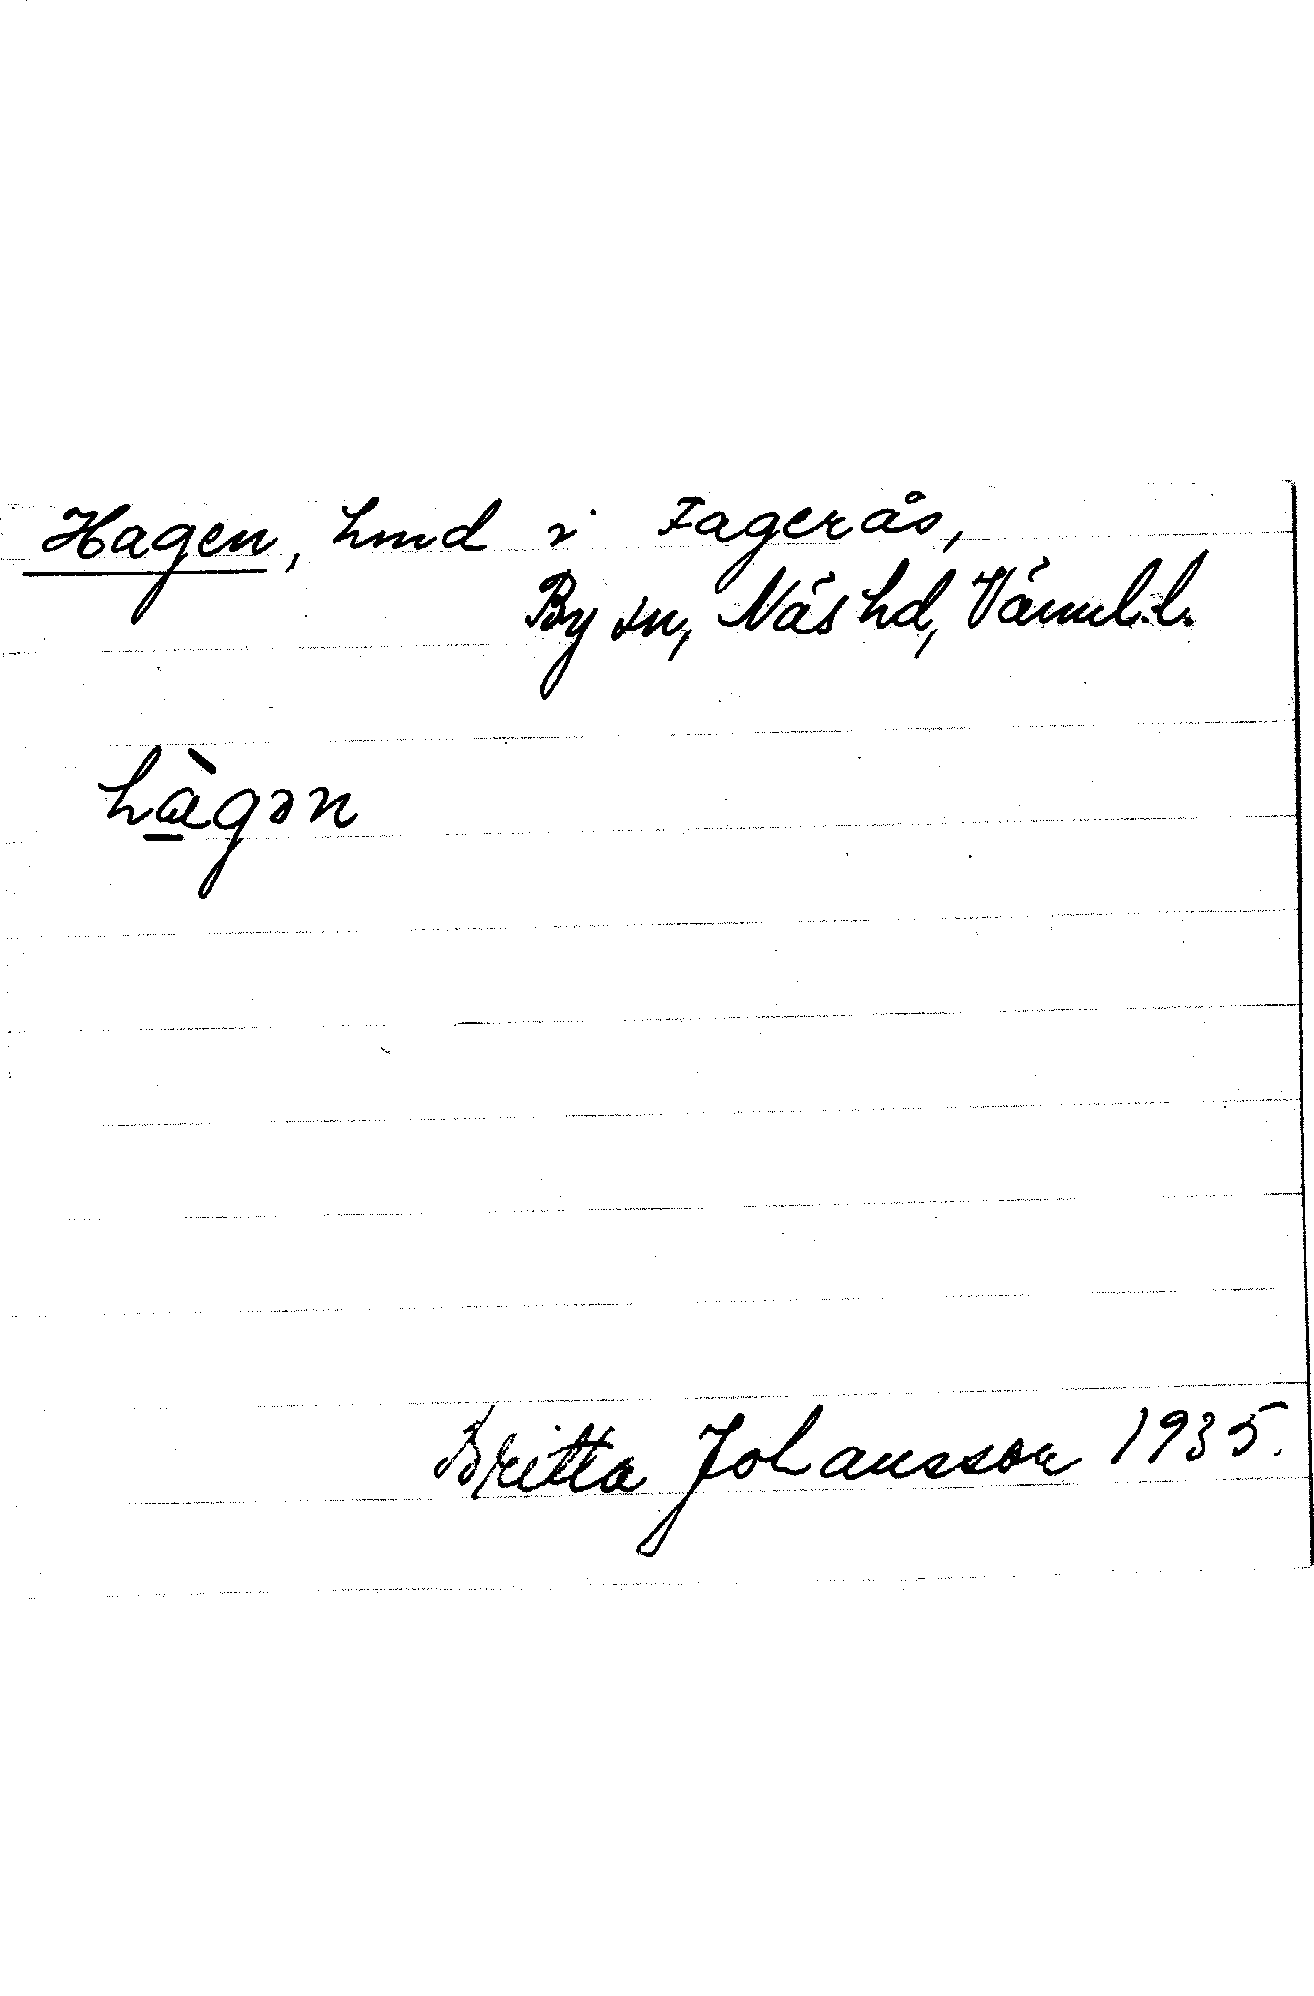 Hagen, hmd i Fagerås,
By sn, Näs hd, Värml. l.
hàgən
Britta Johansson 1935.